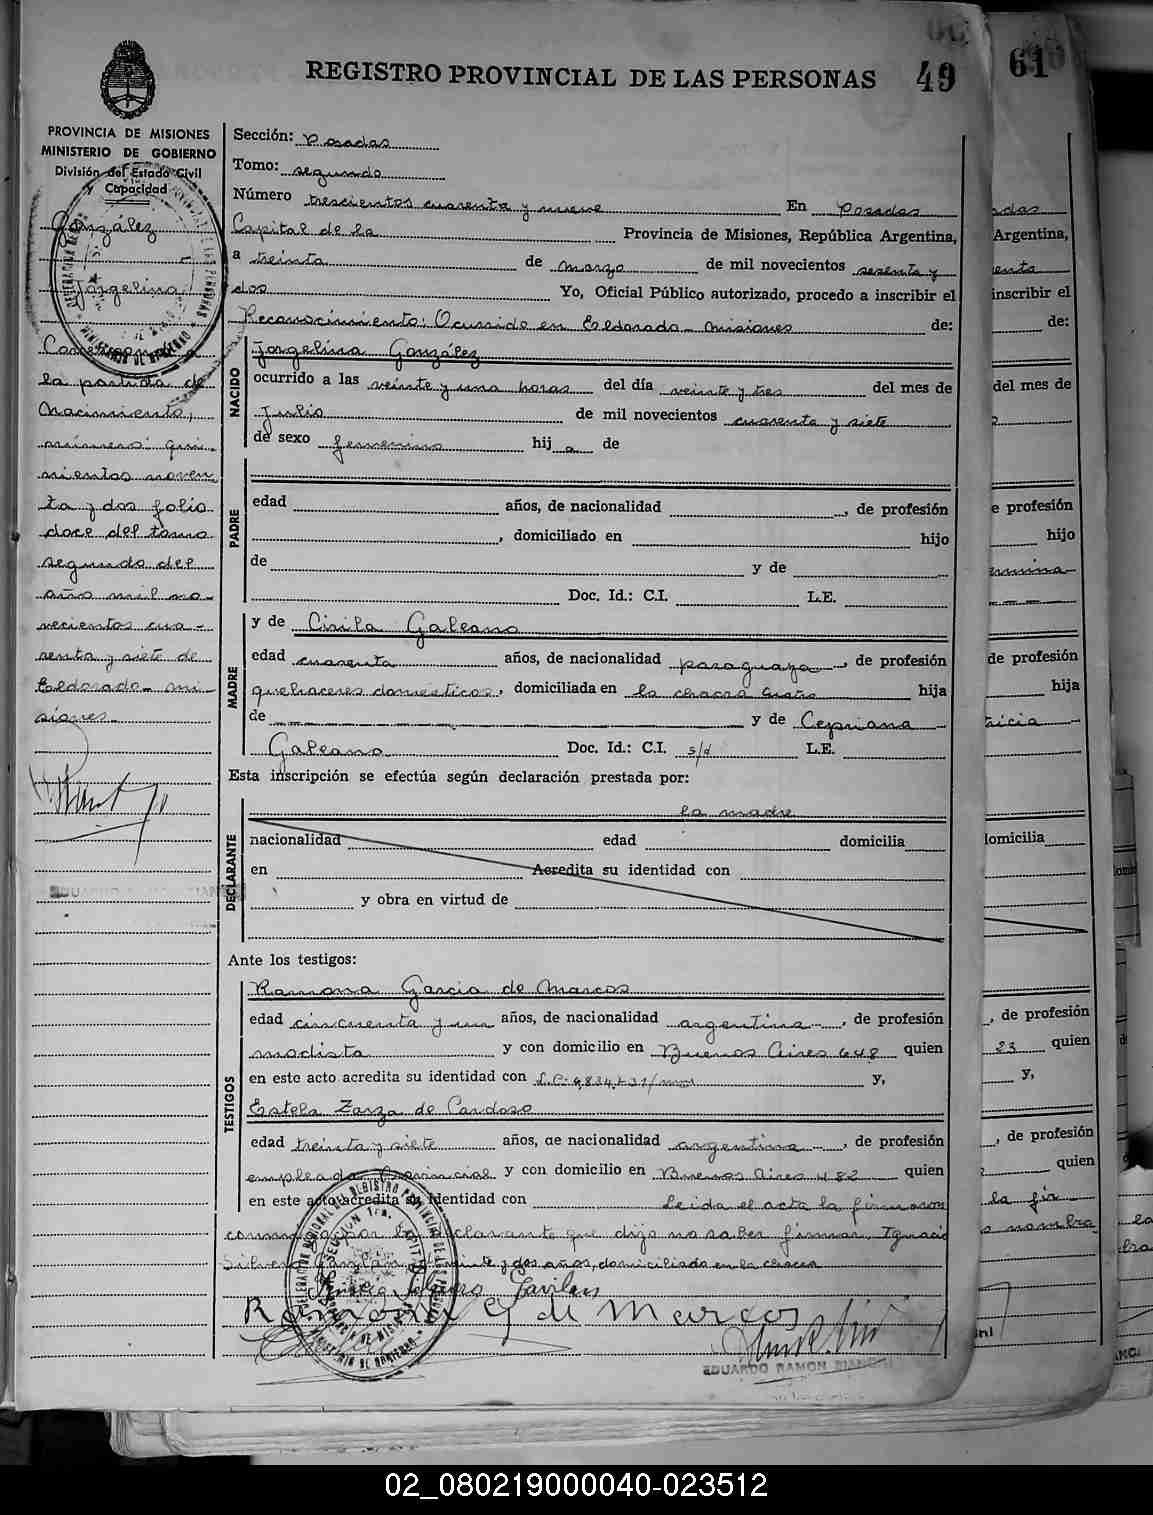 REGISTRO PROVINCIAL DE LAS PERSONAS 49
61
PROVINCIA DE MISIONES
MINISTERIO DE GOBIERNO
División del Estado Civil
y Capacidad
González
Jorgelina
la partida de
nacimiento,
número: qui-
nientos noven-
ta y dos folio
doce del tomo
segundo del
año mil no-
vecientos cua-
renta y siete de
Eldorado- Mi-
siones-
Sección: Posadas
Tomo: segundo
Número trescientos cuarenta y nueve En Posadas
Capital de la Provincia de Misiones, República Argentina,
a treinta de marzo de mil novecientos sesenta y
dos Yo, Oficial Público autorizado, procedo a inscribir el
Reconocimiento: Ocurrido en Eldorado- Misiones de:
NACIDO
Jorgelina González
ocurrido a las veinte y una horas del día veinte y tres del mes de
Julio de mil novecientos cuarenta y siete
de sexo femenino hija de
PADRE
edad años, de nacionalidad , de profesión
, domiciliado en hijo
de y de
Doc. Id.: C.I. L.E.
MADRE
y de Cirila Galeano
edad cuarenta años, de nacionalidad paraguaya, de profesión
quehaceres domésticos, domiciliada en la chacra cuatro hija
de y de Cepriana
Galeano Doc. Id.: C.I. s/d L.E.
Esta inscripción se efectúa según declaración prestada por:
la madre
DECLARANTE
nacionalidad edad domicilia
en Acredita su identidad con
y obra en virtud de
Ante los testigos:
TESTIGOS
Ramona García de Marcos
edad cincuenta y un años, de nacionalidad argentina, de profesión
modista y con domicilio en Buenos Aires 648 quien
en este acto acredita su identidad con y,
Estela Zarza de Cardozo
edad treinta y siete años, de nacionalidad argentina, de profesión
empleada Provincial y con domicilio en Buenos Aires 482 quien
en este acto acredita su identidad con Leída el acta la firmaron
conmigo por la declarante que dijo no saber firmar Ignacio
Silverio veinte y dos años, domiciliado en la chacra
Ramona G de Marcos
EDUARDO RAMON BIANCHI
das
Argentina,
inscribir el
de:
del mes de
e profesión
hijo
de profesión
hija
domicilia
, de profesión
23 quien
y,
, de profesión
quien
la fir
02_080219000040-023512